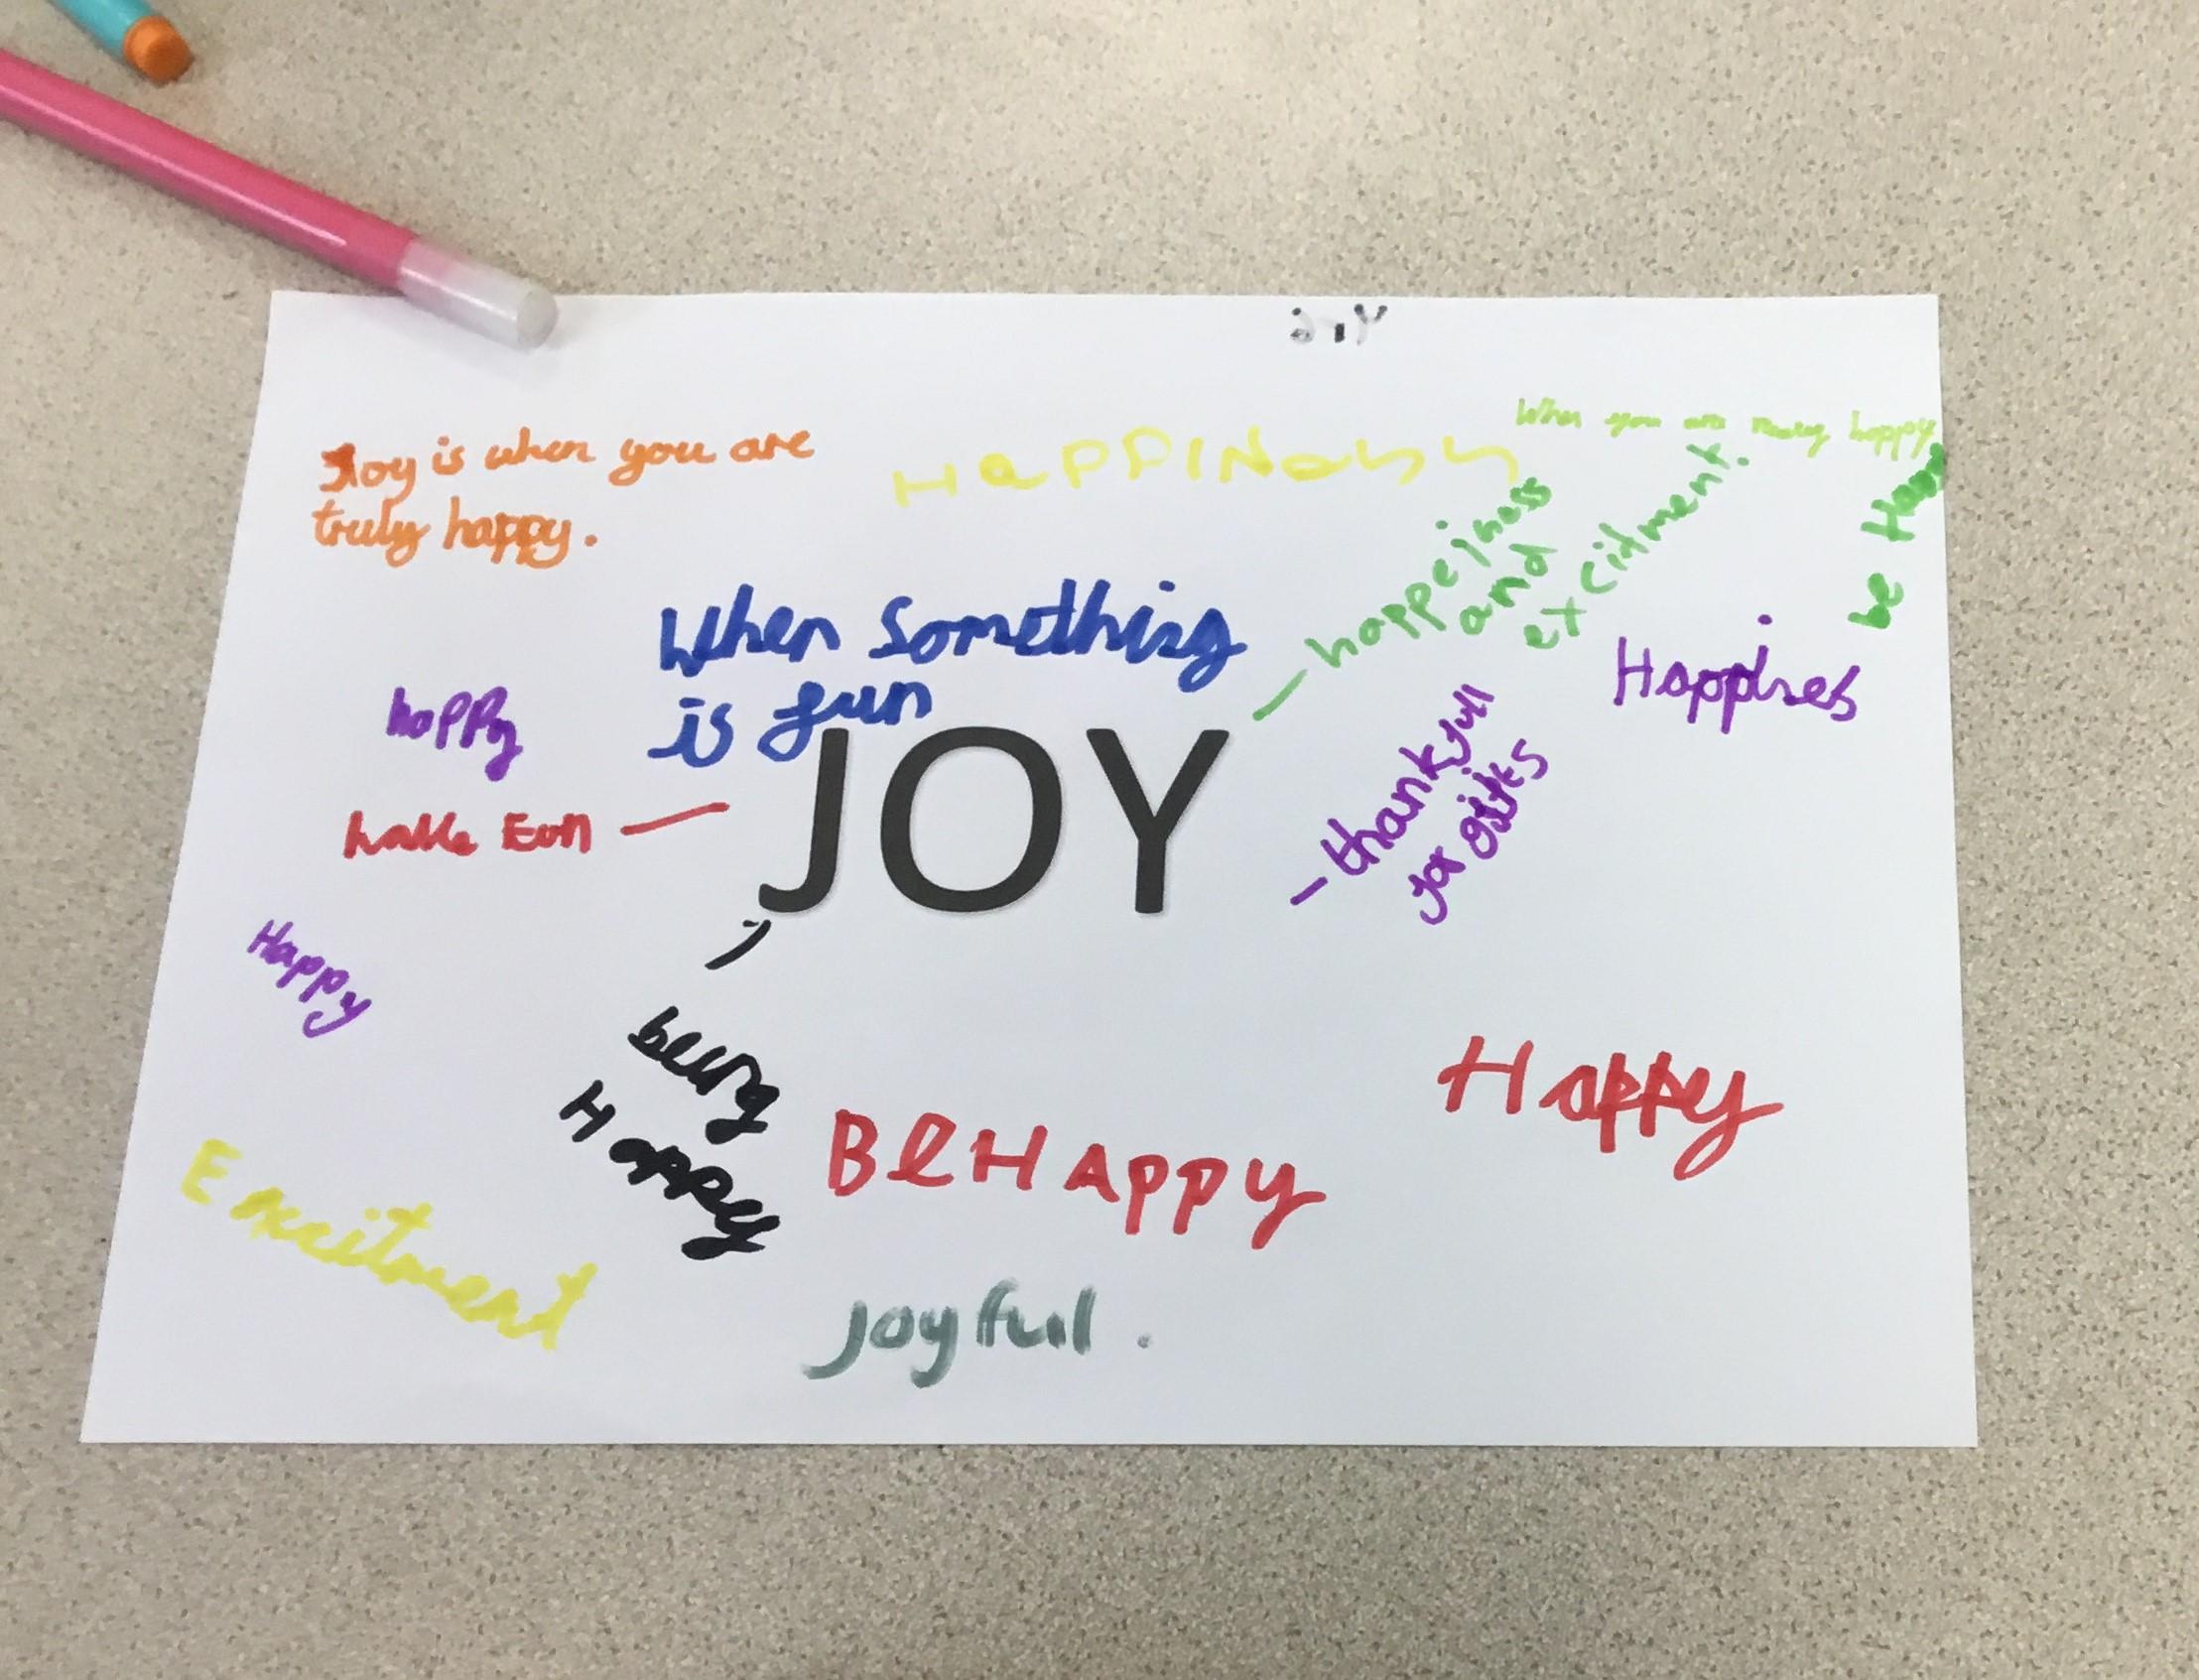 Joy is when you are
truly happy.
HaPPINess
When you are really happy
happeiness
and
excitment.
be Happ
When Something
is fun
happy
JOY
Happines
thankfull
for gifts
Happy
being
Happy
BeHAppy
Happy
Excitment
Joyful.